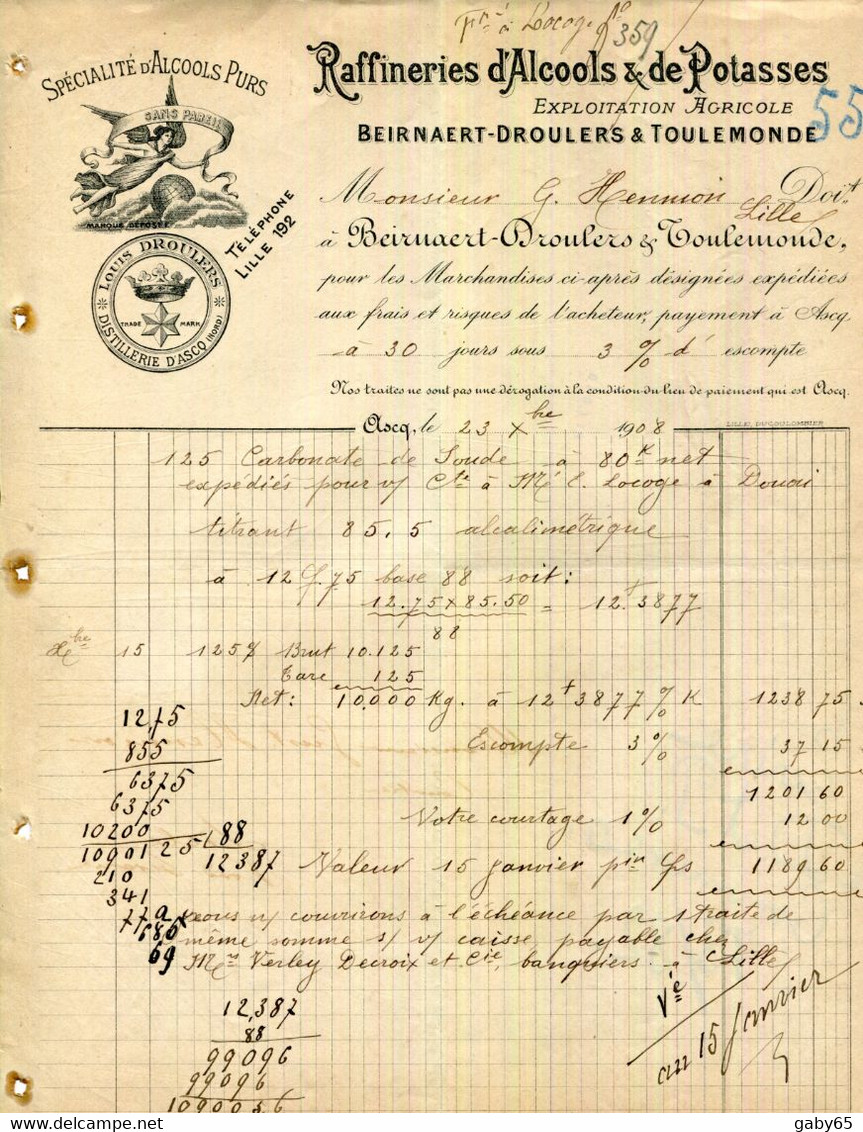 359
55
SPÉCIALITÉ D'ALCOOLS PURS
SANS PAREIL
MARQUE DÉPOSÉE
TÉLÉPHONE
LILLE 192
LOUIS DROULERS
TRADE MARK
DISTILLERIE D'ASCQ (NORD)
Raffineries d'Alcools & de Potasses
EXPLOITATION AGRICOLE
BEIRNAERT-DROULERS & TOULEMONDE
Monsieur G. Hennion Doit
Lille
à Beirnaert-Droulers & Toulemonde,
pour les Marchandises ci-après désignées expédiées
aux frais et risques de l'acheteur, payement à Ascq
à 30 jours sous 3 % d' escompte
Nos traites ne sont pas une dérogation à la condition du lieu de paiement qui est Ascq.
Ascq, le 23 Xbre 1908
LILLE, DUCOULOMBIER
125 Carbonate de Soude à 80K net
expédiés pour v/ Cte à Mr E. Locoge à Douai
titrant 85,5 alcalimétrique
à 12 f. 75 base 88 soit:
12.75 x 85.50 = 12.3877
88
Xbre 15 125 Brut 10.125
Tare 125
Net: 10,000 Kg. à 12f3877 % K 1238 75
Escompte 3% 37 15
1201 60
Votre courtage 1% 12 00
Valeur 15 janvier prin frs 1189 60
nous v/ couvrirons à l'échéance par 1 traite de
même somme s/ v/ caisse payable chez
Mrs Verley Decroix et Cie, banquiers à Lille
12,75
855
6375
6375
10200
1090125 88
210 12387
341
772
685
69
12,387
88
99096
99096
1090056
Vé
au 15 Janvier
gaby65